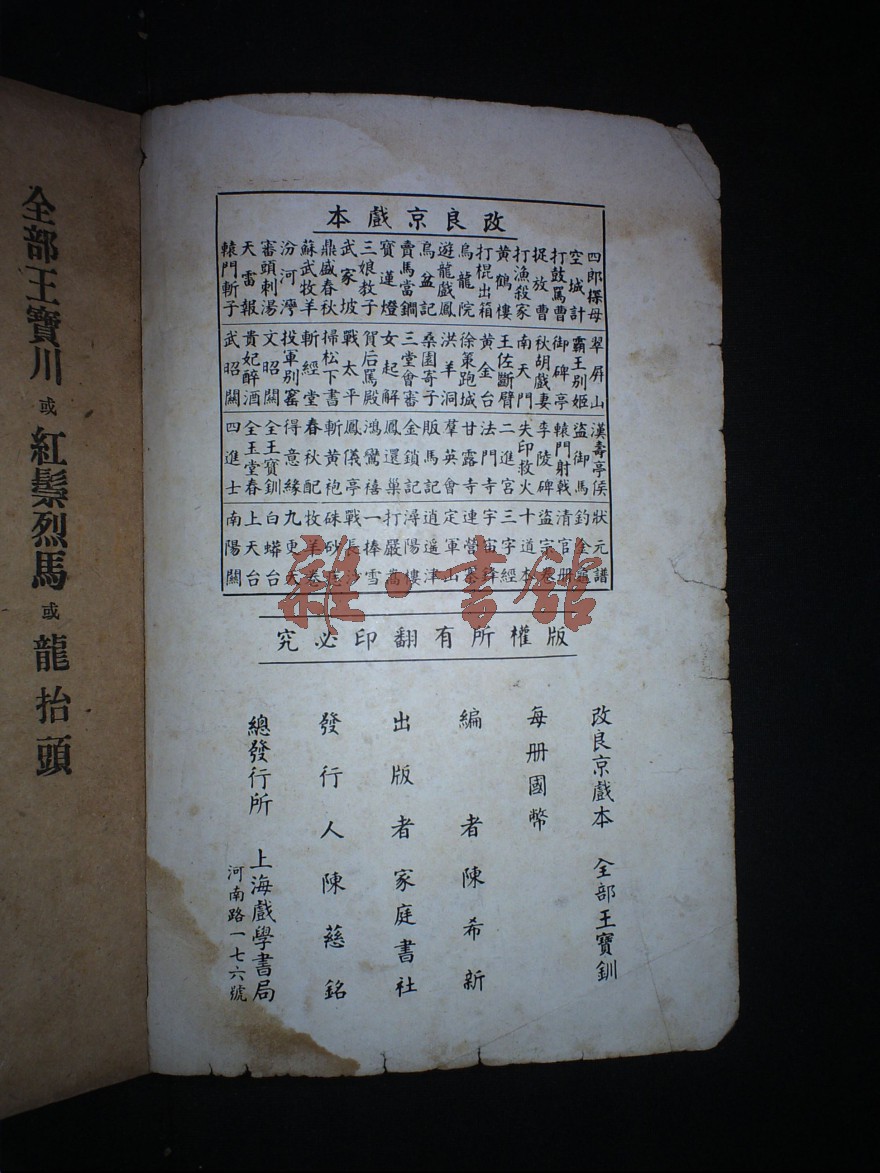 全部王寶川 或 紅鬃烈馬 或 龍抬頭
改良京戲本
四郎探母
空城計
打鼓罵曹
捉放曹
打漁殺家
黃鶴樓
打棍出箱
烏龍院
遊龍戲鳳
烏盆記
賣馬當鐧
寶蓮燈
三娘教子
武家坡
鼎盛春秋
蘇武牧羊
汾河灣
審頭刺湯
天雷報
轅門斬子
翠屏山
霸王別姬
御碑亭
秋胡戲妻
南天門
王佐斷臂
黃金台
徐策跑城
洪羊洞
桑園寄子
三堂會審
女起解
賀后罵殿
戰太平
掃松下書
斬經堂
投軍別窰
文昭關
貴妃醉酒
武昭關
漢壽亭侯
盜御馬
轅門射戟
李陵碑
失印救火
二進宮
法門寺
甘露寺
羣英會
販馬記
金鎖記
鳳還巢
鴻鸞禧
鳳儀亭
斬黃袍
春秋配
得意緣
全王寶釧
全玉堂春
四進士
狀元譜
釣金龜
清官册
盜宗卷
十道本
三字經
宇宙鋒
連營寨
定軍山
逍遙津
潯陽樓
打嚴嵩
一捧雪
戰長沙
硃砂痣
牧羊卷
九更天
白蟒台
上天台
南陽關
雜·書館
版權所有翻印必究
改良京戲本 全部王寶釧
每册國幣
編者陳希新
出版者家庭書社
發行人陳慈銘
總發行所 上海戲學書局
河南路一七六號